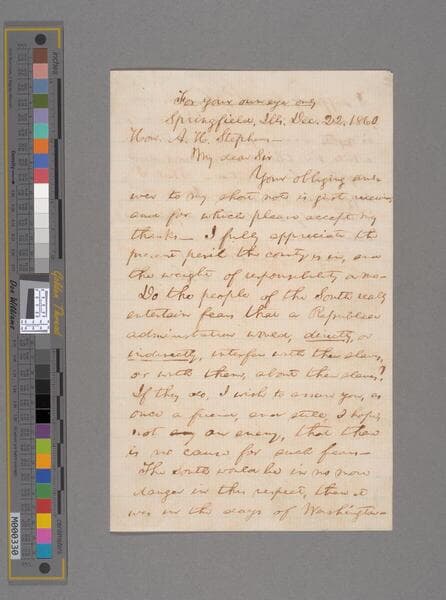 For your own eye only
Springfield, Ills. Dec. 22, 1860
Hon. A. H. Stephens—
My dear Sir
Your obliging ans-
wer to my short note is just received,
and for which please accept my
thanks— I fully appreciate the
present peril the country is in, and
the weight of responsibility on me—
Do the people of the South really
entertain fears that a Republican
administration would, directly, or
indirectly, interfere with their slaves,
or with them, about their slaves?
If they do, I wish to assure you, as
once a friend, and still, I hope,
not an enemy, that there
is no cause for such fears—
The South would be in no more
danger in this respect, than it
was in the days of Washington—
inches
centimeters
Golden Thread
M000330